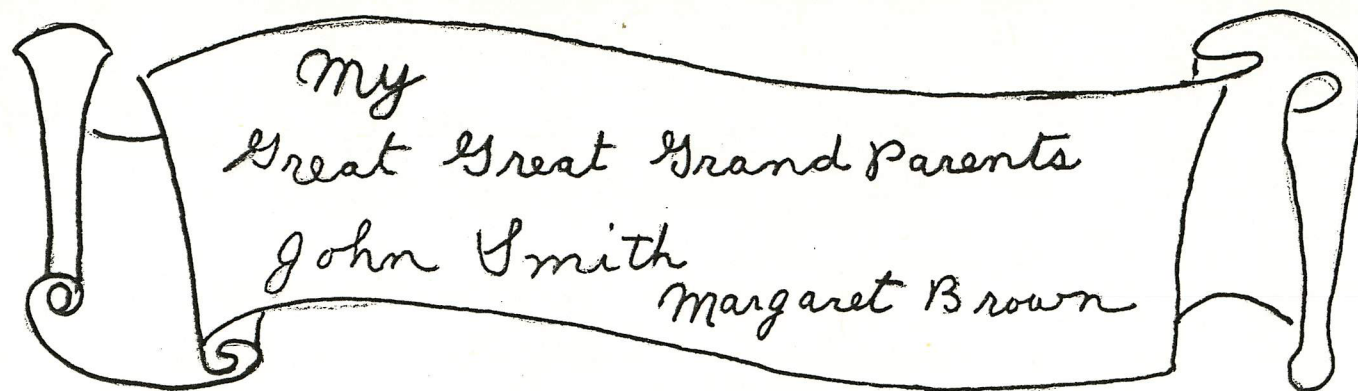 My
Great Great Grand Parents
John Smith
Margaret Brown